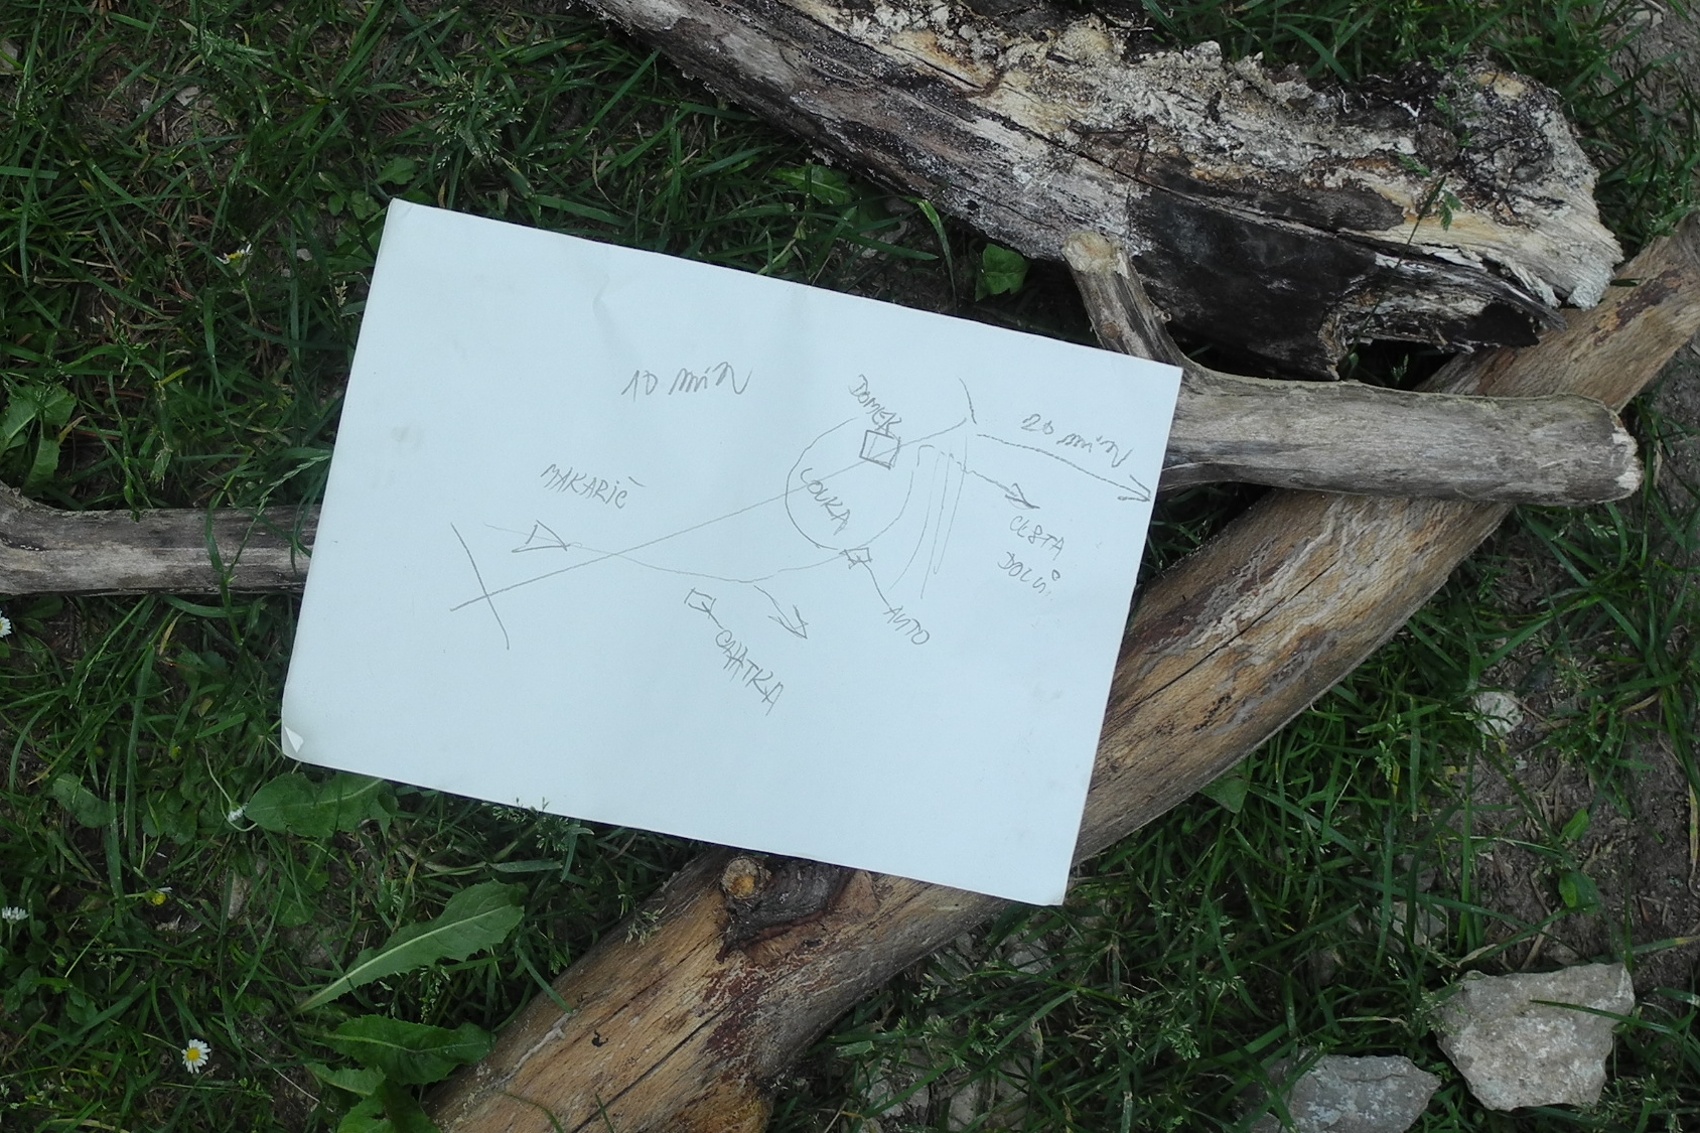 10 min
DOMEK
20 min
MAKARIČ
LOUKA
CESTA
DOLŮ
AUTO
CHATKA